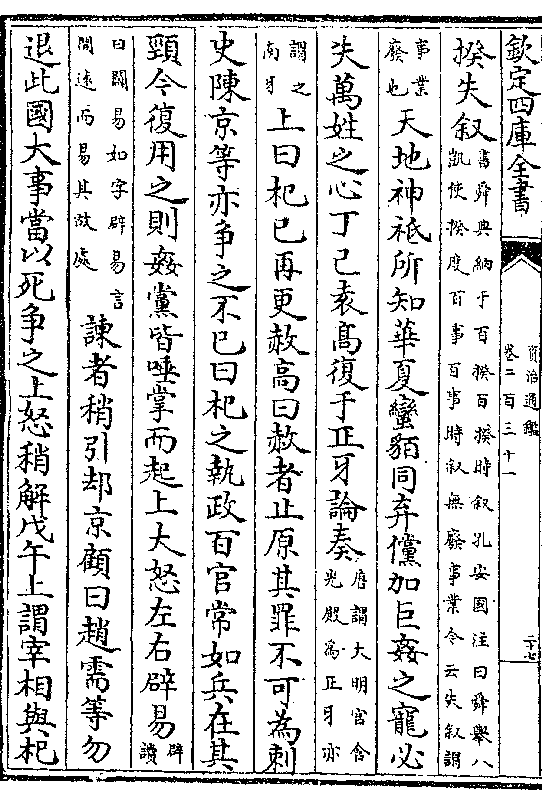 欽定四庫全書
資治通鑑
卷二百三十一
二十七
揆失叙書舜典納于百揆百揆時叙孔安國注曰舜舉八凱使揆度百事百事時叙無廢事業今云失叙謂
事業廢也天地神祇所知華夏蠻貊同弃儻加巨姦之寵必
失萬姓之心丁巳袁髙復于正牙論奏唐謂大明宫含光殿為正牙亦
謂之南牙上曰杞已再更赦高曰赦者止原其罪不可為刺
史陳京等亦争之不已曰杞之執政百官常如兵在其
頸今復用之則姦黨皆唾掌而起上大怒左右辟易辟讀
曰闢易如字辟易言開遠而易其故處諫者稍引却京顧曰趙需等勿
退此國大事當以死争之上怒稍解戊午上謂宰相與杞